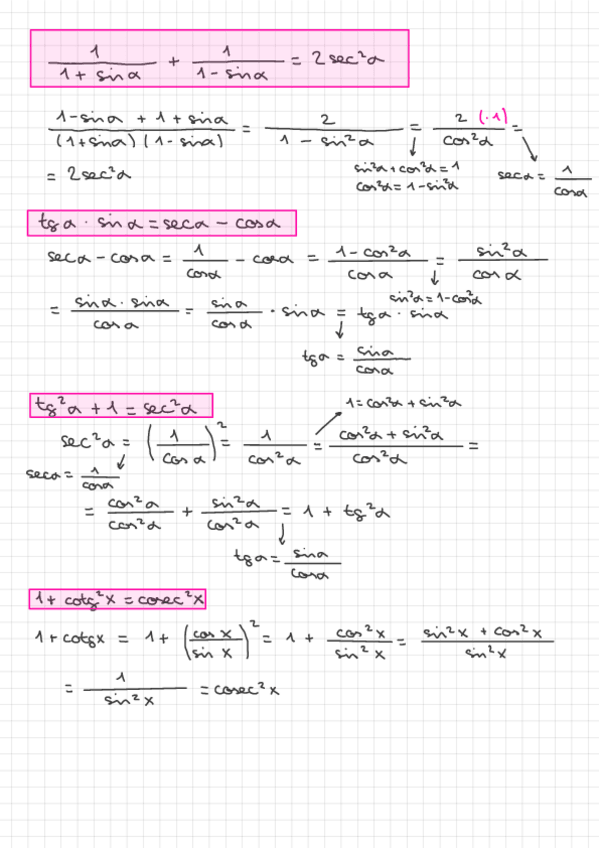 1/(1 + sinα) + 1/(1 - sinα) = 2sec²α
(1-sinα + 1 + sinα)/((1+sinα)(1-sinα)) = 2/(1 - sin²α) = 2 (·1)/cos²α =
sin²α+cos²α=1
cos²α=1-sin²α
secα = 1/cosα
= 2sec²α
tgα · sinα = secα - cosα
secα - cosα = 1/cosα - cosα = (1-cos²α)/cosα = sin²α/cosα
sin²α=1-cos²α
= (sinα · sinα)/cosα = sinα/cosα · sinα = tgα · sinα
tgα = sinα/cosα
tg²α + 1 = sec²α
1=cos²α + sin²α
sec²α = (1/cosα)² = 1/cos²α = (cos²α + sin²α)/cos²α =
secα = 1/cosα
= cos²α/cos²α + sin²α/cos²α = 1 + tg²α
tgα = sinα/cosα
1+ cotg²x = cosec²x
1+cotgx = 1+ (cos x/sin x)² = 1 + cos²x/sin²x = (sin²x + cos²x)/sin²x
= 1/sin²x = cosec²x